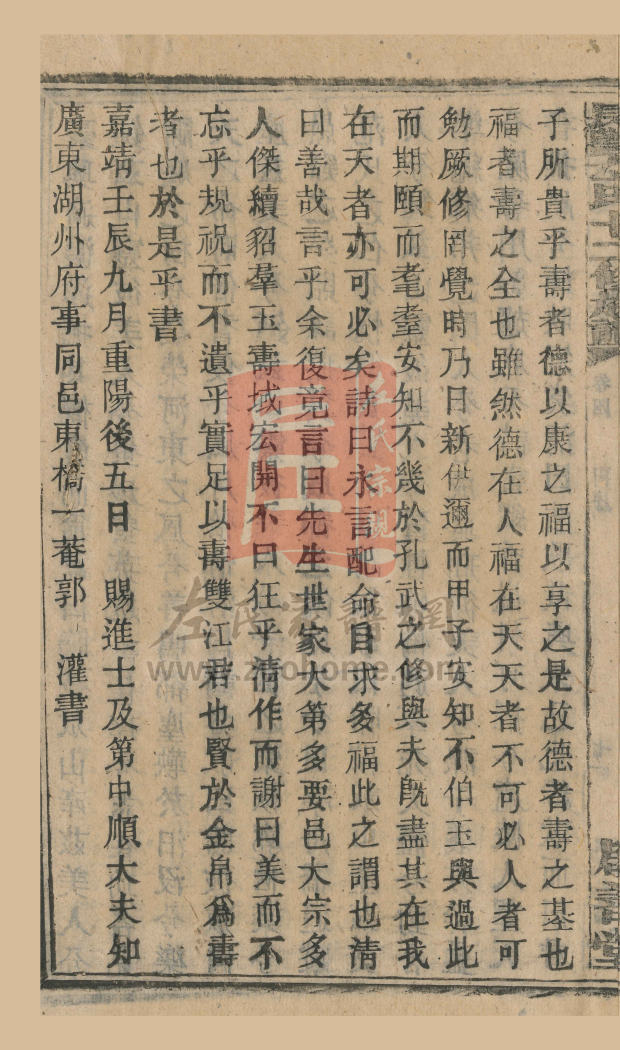 子所貴乎壽者德以康之福以享之是故德者壽之基也
福者壽之全也雖然德在人福在天天者不可必人者可
勉厥修罔覺時乃日新伊邇而甲子安知不伯玉與過此
而期頤而耄耋安知不幾於孔武之修與夫既盡其在我
在天者亦可必矣詩曰永言配命自求多福此之謂也清
曰善哉言乎余復竟言曰先生世家大第多要邑大宗多
人傑續貂羣玉壽域宏開不曰狂乎清作而謝曰美而不
忘乎規祝而不遺乎實足以壽雙江君也賢於金帛爲壽
者也於是乎書
嘉靖壬辰九月重陽後五日 賜進士及第中順大夫知
廣東湖州府事同邑東橋一菴郭 灌書
卷四
左氏宗親
左氏家譜網
www.zuohome.com